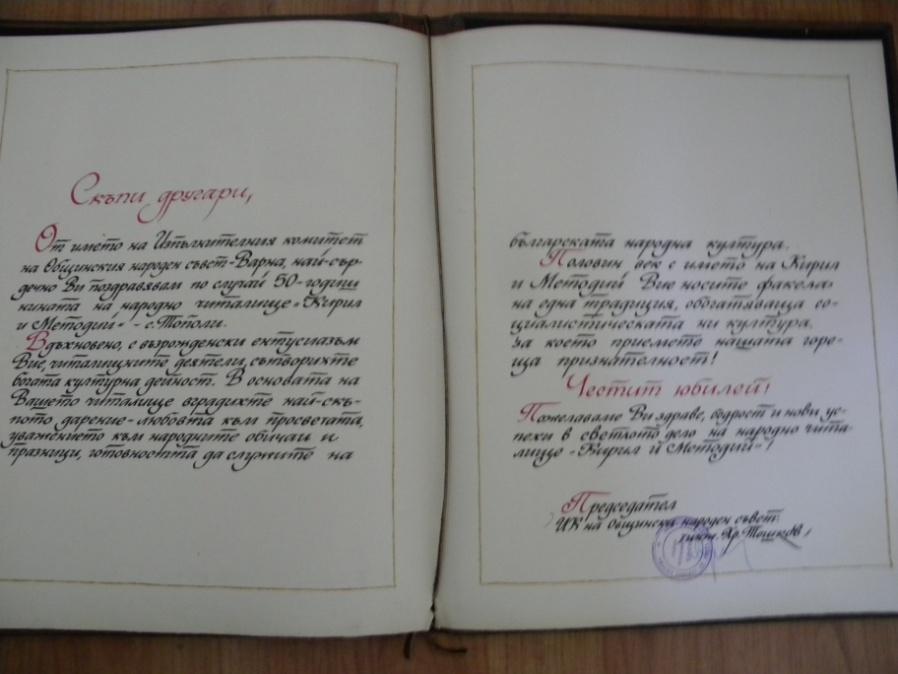 Скъпи другари,
От името на Изпълнителния комитет
на Общинския народен съвет - Варна, най-сър-
дечно Ви поздравявам по случай 50-годиш
нината на народно читалище „Кирил
и Методий" - с. Тополи.
Вдъхновено, с възрожденски ентусиазъм
Вие, читалищните деятели, сътворихте
богата културна дейност. В основата на
Вашето читалище вградихте най-скъ-
пото дарение - любовта към просветата,
уважението към народните обичаи и
празници, готовността да служите на
българската народна култура.
Половин век с името на Кирил
и Методий Вие носите факела
на една традиция, обогатяваща со-
циалистическата ни култура,
за което приемете нашата горе-
ща признателност!
Честит юбилей!
Пожелаваме Ви здраве, бодрост и нови ус-
пехи в светлото дело на народно чита-
лище „Кирил и Методий"!
Председател
ИК на Общински народен съвет:
/инж. Хр. Тошков/